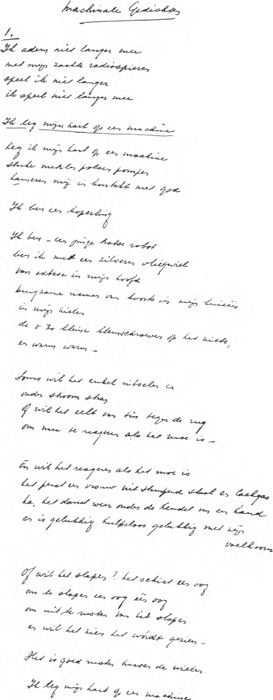 Machinale Gedichten
1.
Ik adem niet langer mee
met mijn zachte radiospieren
speel ik niet langer
ik speel niet langer mee
Ik leg mijn hart op een machine
Leg ik mijn hart op een machine
sterke polsen pompen
hameren mij in kontakt met god
Ik ben een koperling
Ik ben een jonge koket robot
ben ik met een zilveren vliegwiel
van extase in mijn hoofd
riemen van koorts in mijn
in mijn wielen
de o zo kleine op het niets,
en warm warm -
Soms wil het enkel uitselen en
onder stroom staan
of wil het tegen de rug
om mee te reageren als het moe is -
En wil het reageren als het moe is
het perst een vrouw uit stampend staal en lachgas
ha, het danst weer onder de hendel van een hand
en is gelukkig hulpeloos gelukkig met mijn
Of wil het slapen? het schiet een oog
om te slapen een oog één oog
om uit te rusten van het slapen
en wil het niet het wordt gezien -
Het is goed rusten tussen de wielen
Ik leg mijn hart op een machine